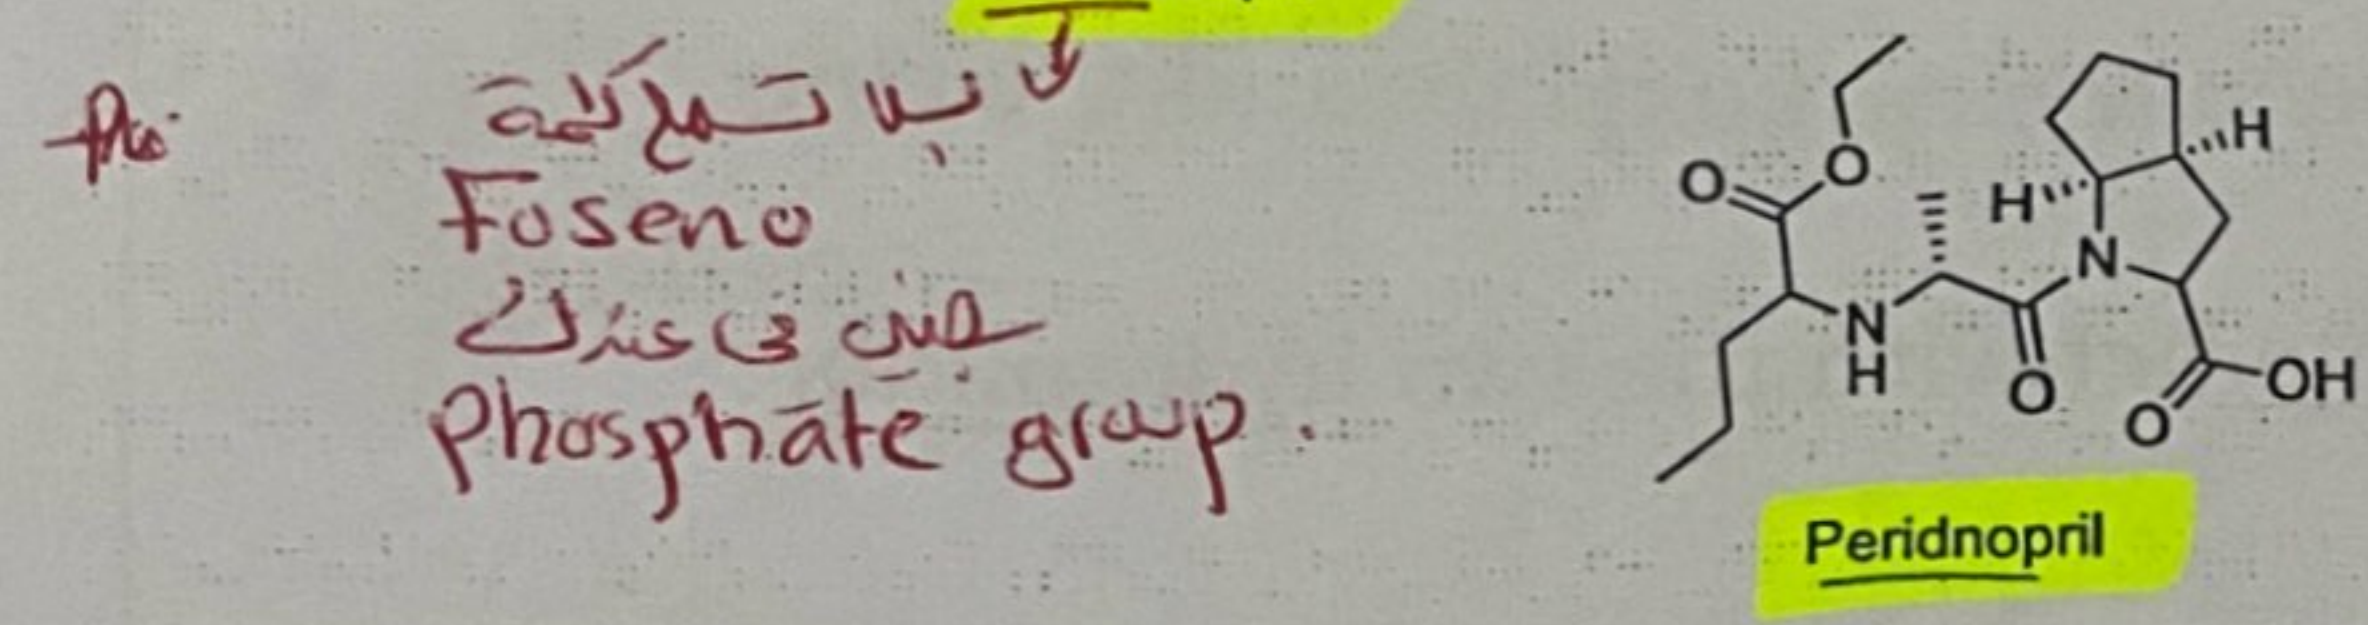 لما تسمع كلمة
Foseno
يبقى في عندك
phosphate group.
O
O
H
H
N
N
H
O
O
OH
Peridnopril